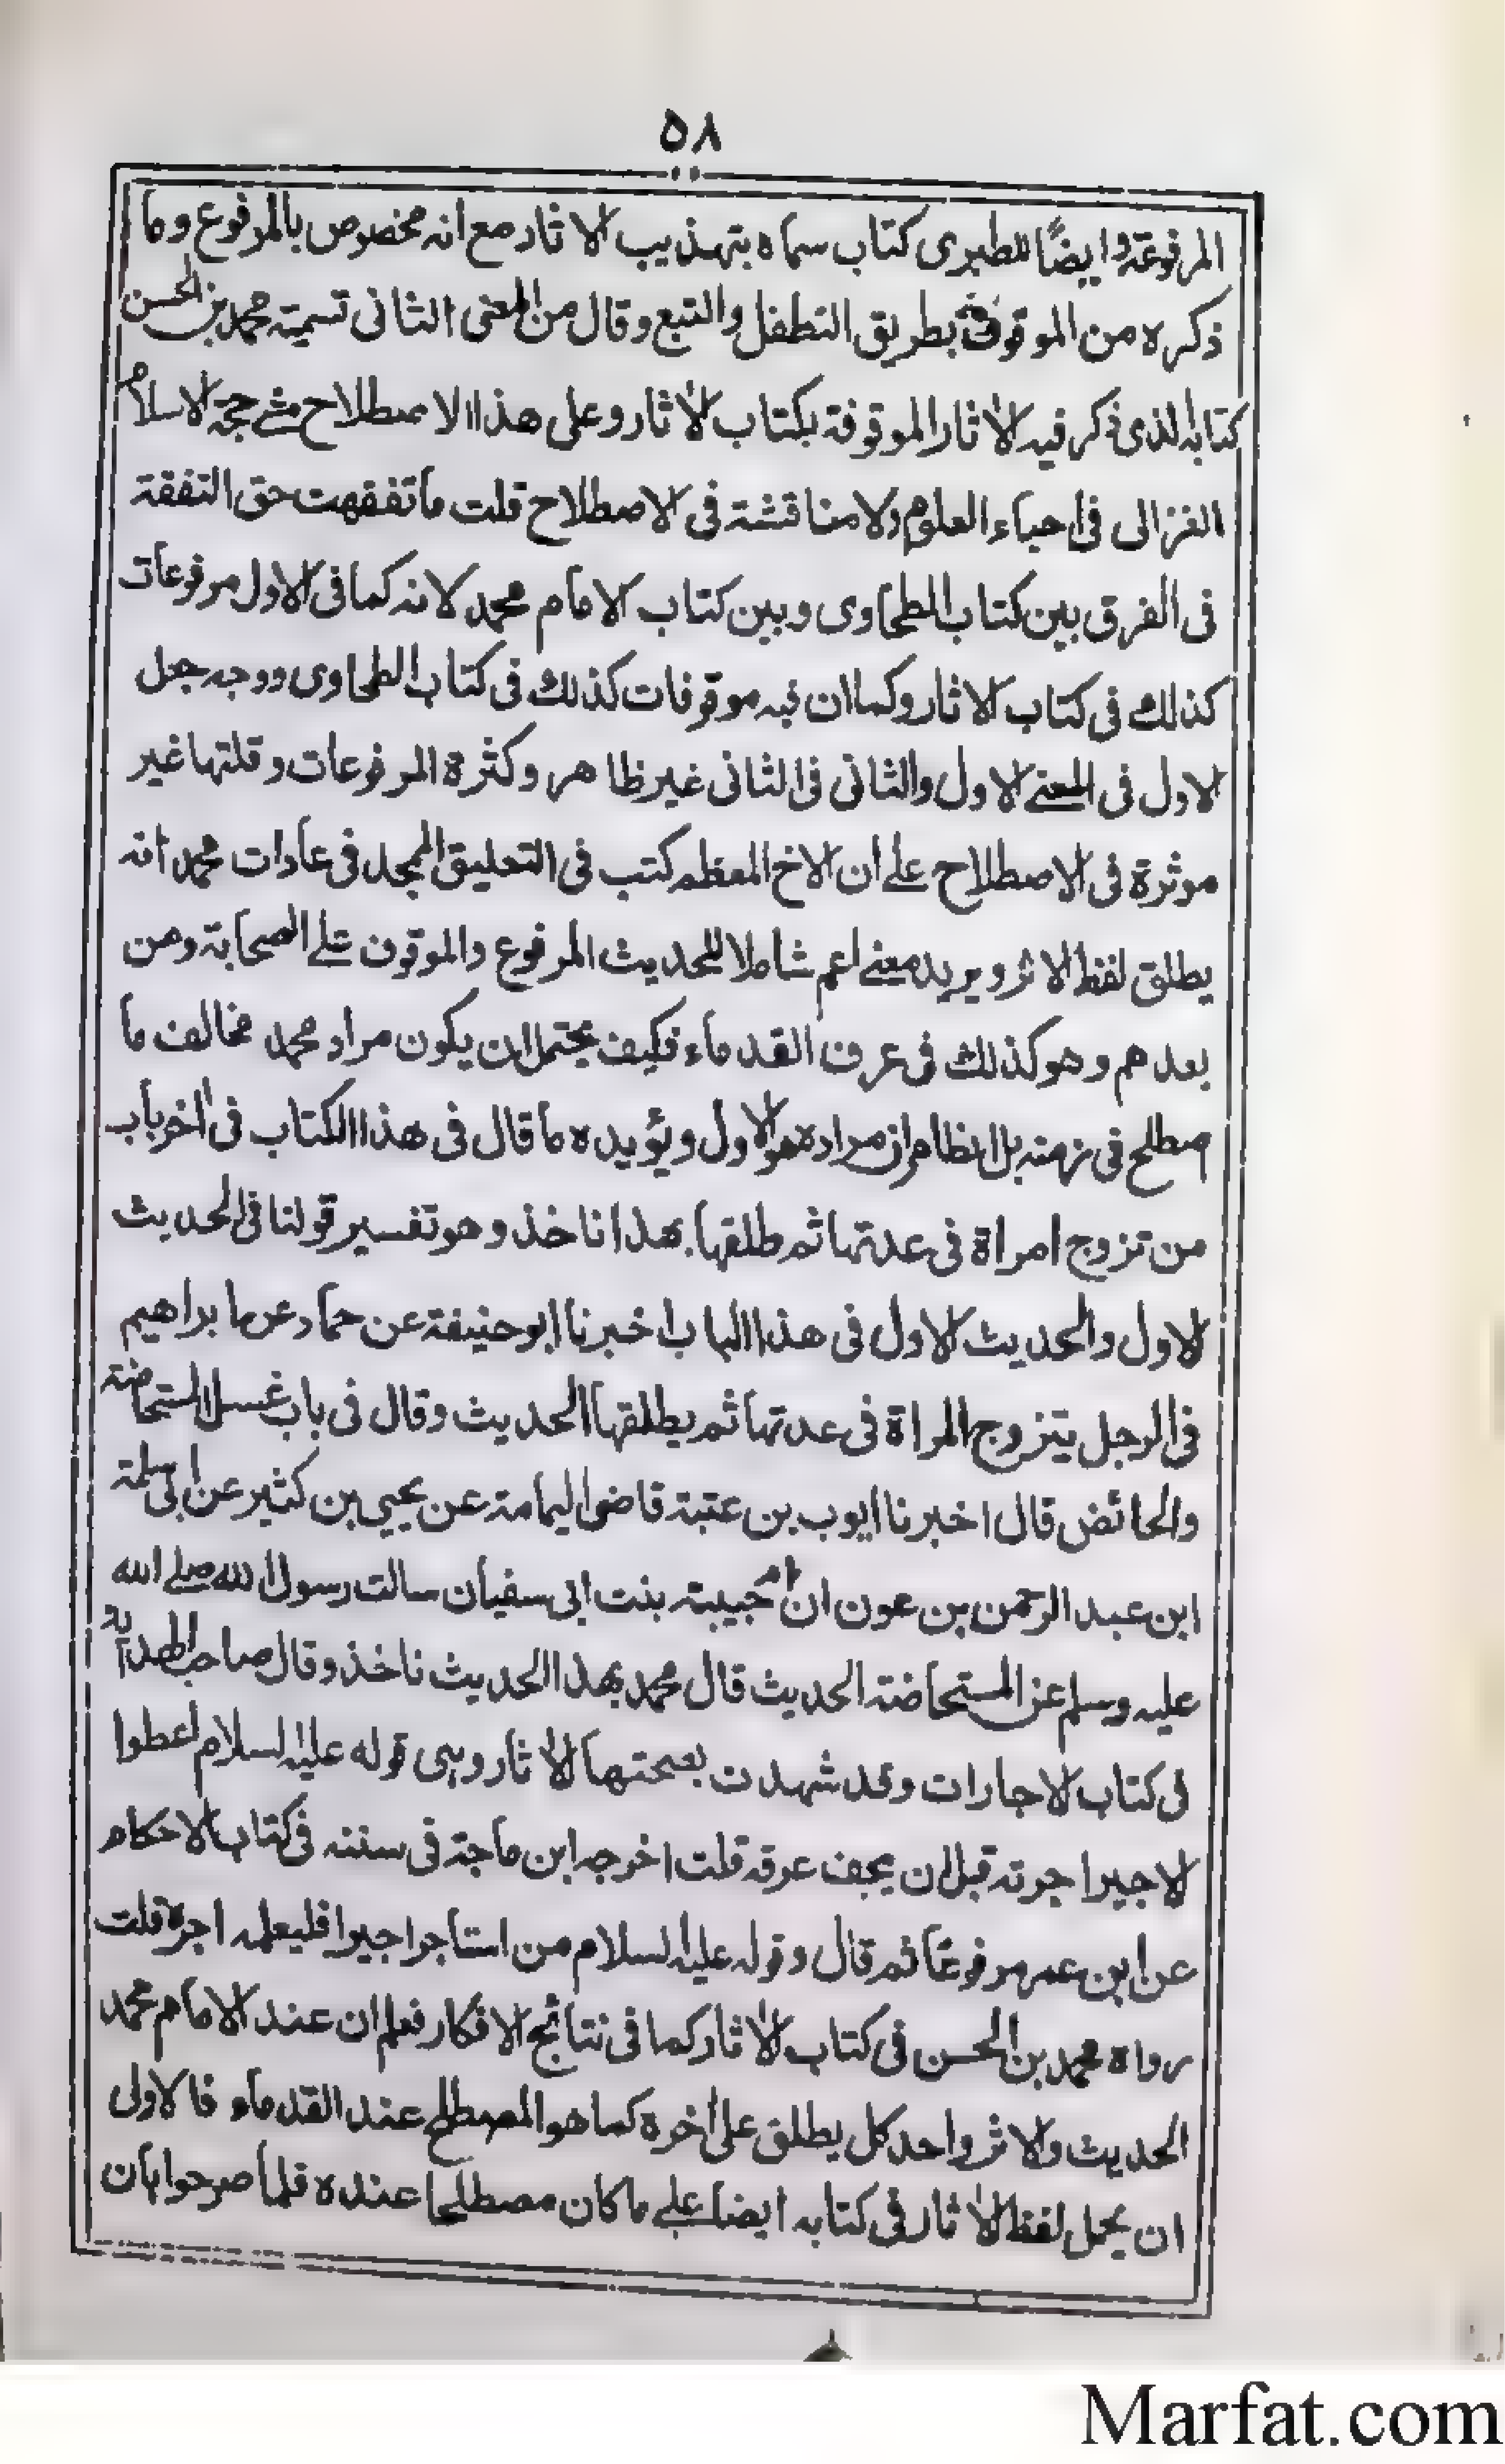 ٥٨
المرفوعة وايضًا للطبرى كتاب سماه بتهذيب الاثار مع انه مخصوص بالمرفوع وما
ذكره من الموقوف بطريق التطفل والتبع وقال من المعنى الثانى تسمية محمد بن الحسن
كتابه الذى ذكر فيه الاٰثار الموقوفة بكتاب الاٰثار وعلى هذا الاصطلاح مشے حجة الاسلام
الغزالى فى احياء العلوم ولا مناقشة فى الاصطلاح قلت ما تفقهت حق التفقة
فى الفرق بين كتاب الطحاوى وبين كتاب الامام محمد لانه كما فى الاول مرفوعات
كذلك فى كتاب الاثار وكما ان فيه موقوفات كذلك فى كتاب الطحاوى ووجه جعل
الاول فى المعنے الاول والثانى فى الثانى غير ظاهر وكثرة المرفوعات وقلتها غير
موثرة فى الاصطلاح علے ان الاخ المعظم كتب فى التعليق الممجد فى عادات محمد انه
يطلق لفظ الاثر ويريد معنے اعم شاملا للحديث المرفوع والموقوف علے الصحابة ومن
بعدهم وهو كذلك فى عرف القدماء فكيف يحتمل ان يكون مراد محمد مخالف ما
اصطلح فى زمنه بل الظاهر ان مراده هو الاول ويؤيده ما قال فى هذا الكتاب فى اٰخر باب
من تزوج امراة فى عدتها ثم طلقها بهذا ناخذ وهو تفسير قولنا فى الحديث
الاول والحديث الاول فى هذا الباب اخبرنا ابو حنيفة عن حماد عن ابراهيم
فى الرجل يتزوج المراة فى عدتها ثم يطلقها الحديث وقال فى باب غسل المستحاضة
والحائض قال اخبرنا ايوب بن عتبة قاضى اليمامة عن يحيى بن كثير عن ابى سلمة
ابن عبد الرحمن بن عون ان ام حبيبة بنت ابى سفيان سالت رسول الله صلے الله
عليه وسلم عن المستحاضة الحديث قال محمد بهذا الحديث ناخذ وقال صاحب الهداية
فى كتاب الاجارات وقد شهدت بصحتها الاٰثار وہی قوله عليه السلام اعطوا
الاجير اجرته قبل ان يجف عرقه قلت اخرجه ابن ماجة فى سننه فى كتاب الاحكام
عن ابن عمر مرفوعًا ثم قال وقوله عليه السلام من استاجر اجيرا فليعلمه اجره قلت
رواه محمد بن الحسن فى كتاب الاٰثار كما فى نتائج الافكار فعلم ان عند الامام محمد
الحديث والاثر واحد كل يطلق على اٰخره كما هو المصطلح عند القدماء فالاولى
ان يحمل لفظ الاٰثار فى كتابه ايضا علے ما كان مصطلحا عنده فلما صرحوا بان
Marfat.com